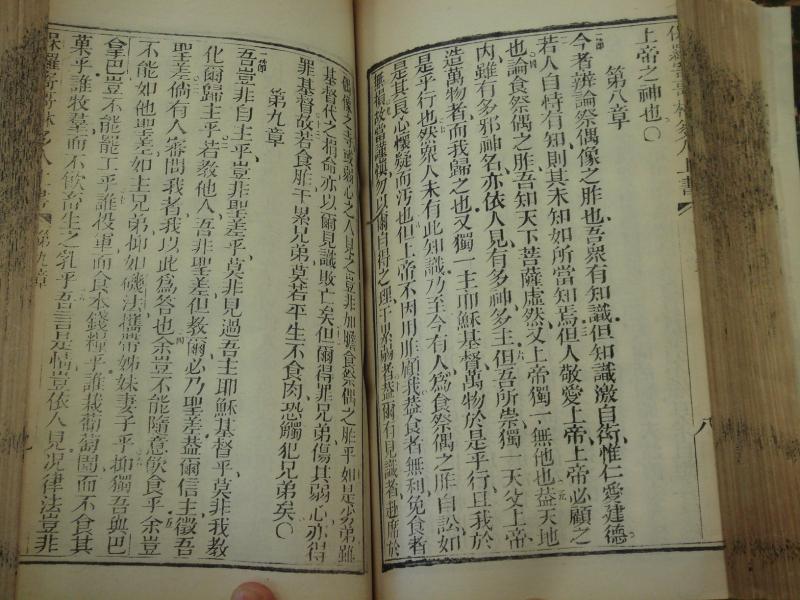 上帝之神也〇
第八章
今者辨論祭偶像之胙也吾眾有知識但知識激自衒惟仁愛建德
若人自恃有知則其未知如所當知焉但人敬愛上帝上帝必顧之
也論食祭偶之胙吾知天下菩薩虛然又上帝獨一無他也蓋天地
內雖有多邪神名亦依人見有多神多主但吾所崇獨一天父上帝
造萬物者而我歸之也又獨一主耶穌基督萬物於是乎行且我於
是乎行也然眾人未有此知識乃至今有人為食祭偶之胙自訟如
是其良心懷疑而污也但上帝不因用胙顧我蓋食者無利免食者
無損故當謹慎勿以爾自得之理干累弱者蓋爾有見識者赴席於
偶像之寺或弱心之人見之豈非加膽食祭偶之胙乎如是劣弟雖
基督代之捐命亦以爾見識敗亡矣但爾得罪兄弟傷其弱心亦得
罪基督故若食胙干累兄弟莫若平生不食肉恐觸犯兄弟矣〇
第九章
吾豈非自主乎豈非聖差乎莫非見過吾主耶穌基督乎莫非我教
化爾歸主乎若教他人吾非聖差但教爾必乃聖差蓋爾信主徵吾
聖差倘有人審問我者我以此為答也余豈不能隨意飲食乎余豈
不能如他聖差如主兄弟仰如磯法攜帶姊妹妻子乎抑獨吾與巴
拿巴豈不能罷工乎誰投軍而食本錢糧乎誰栽葡萄園而不食其
菓乎誰牧羣而不飲畜生之乳乎吾言是情豈依人見況律法豈非
第九章